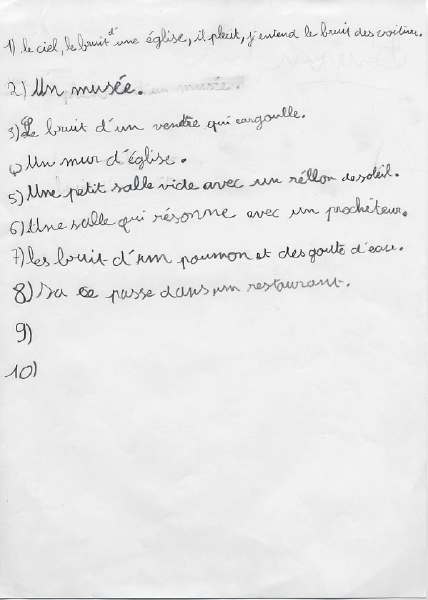 1) le ciel, le bruit d'une église, il pleut, j'entend le bruit des voitures.
2) Un musée.
3) Le bruit d'un ventre qui gargouille.
4) Un mur d'église.
5) Une petit salle vide avec un réllon de soleil.
6) Une salle qui résonne avec un projecteur.
7) les bruit d'un poumon et des goute d'eau.
8) Sa ce passe dans un restaurant.
9)
10)